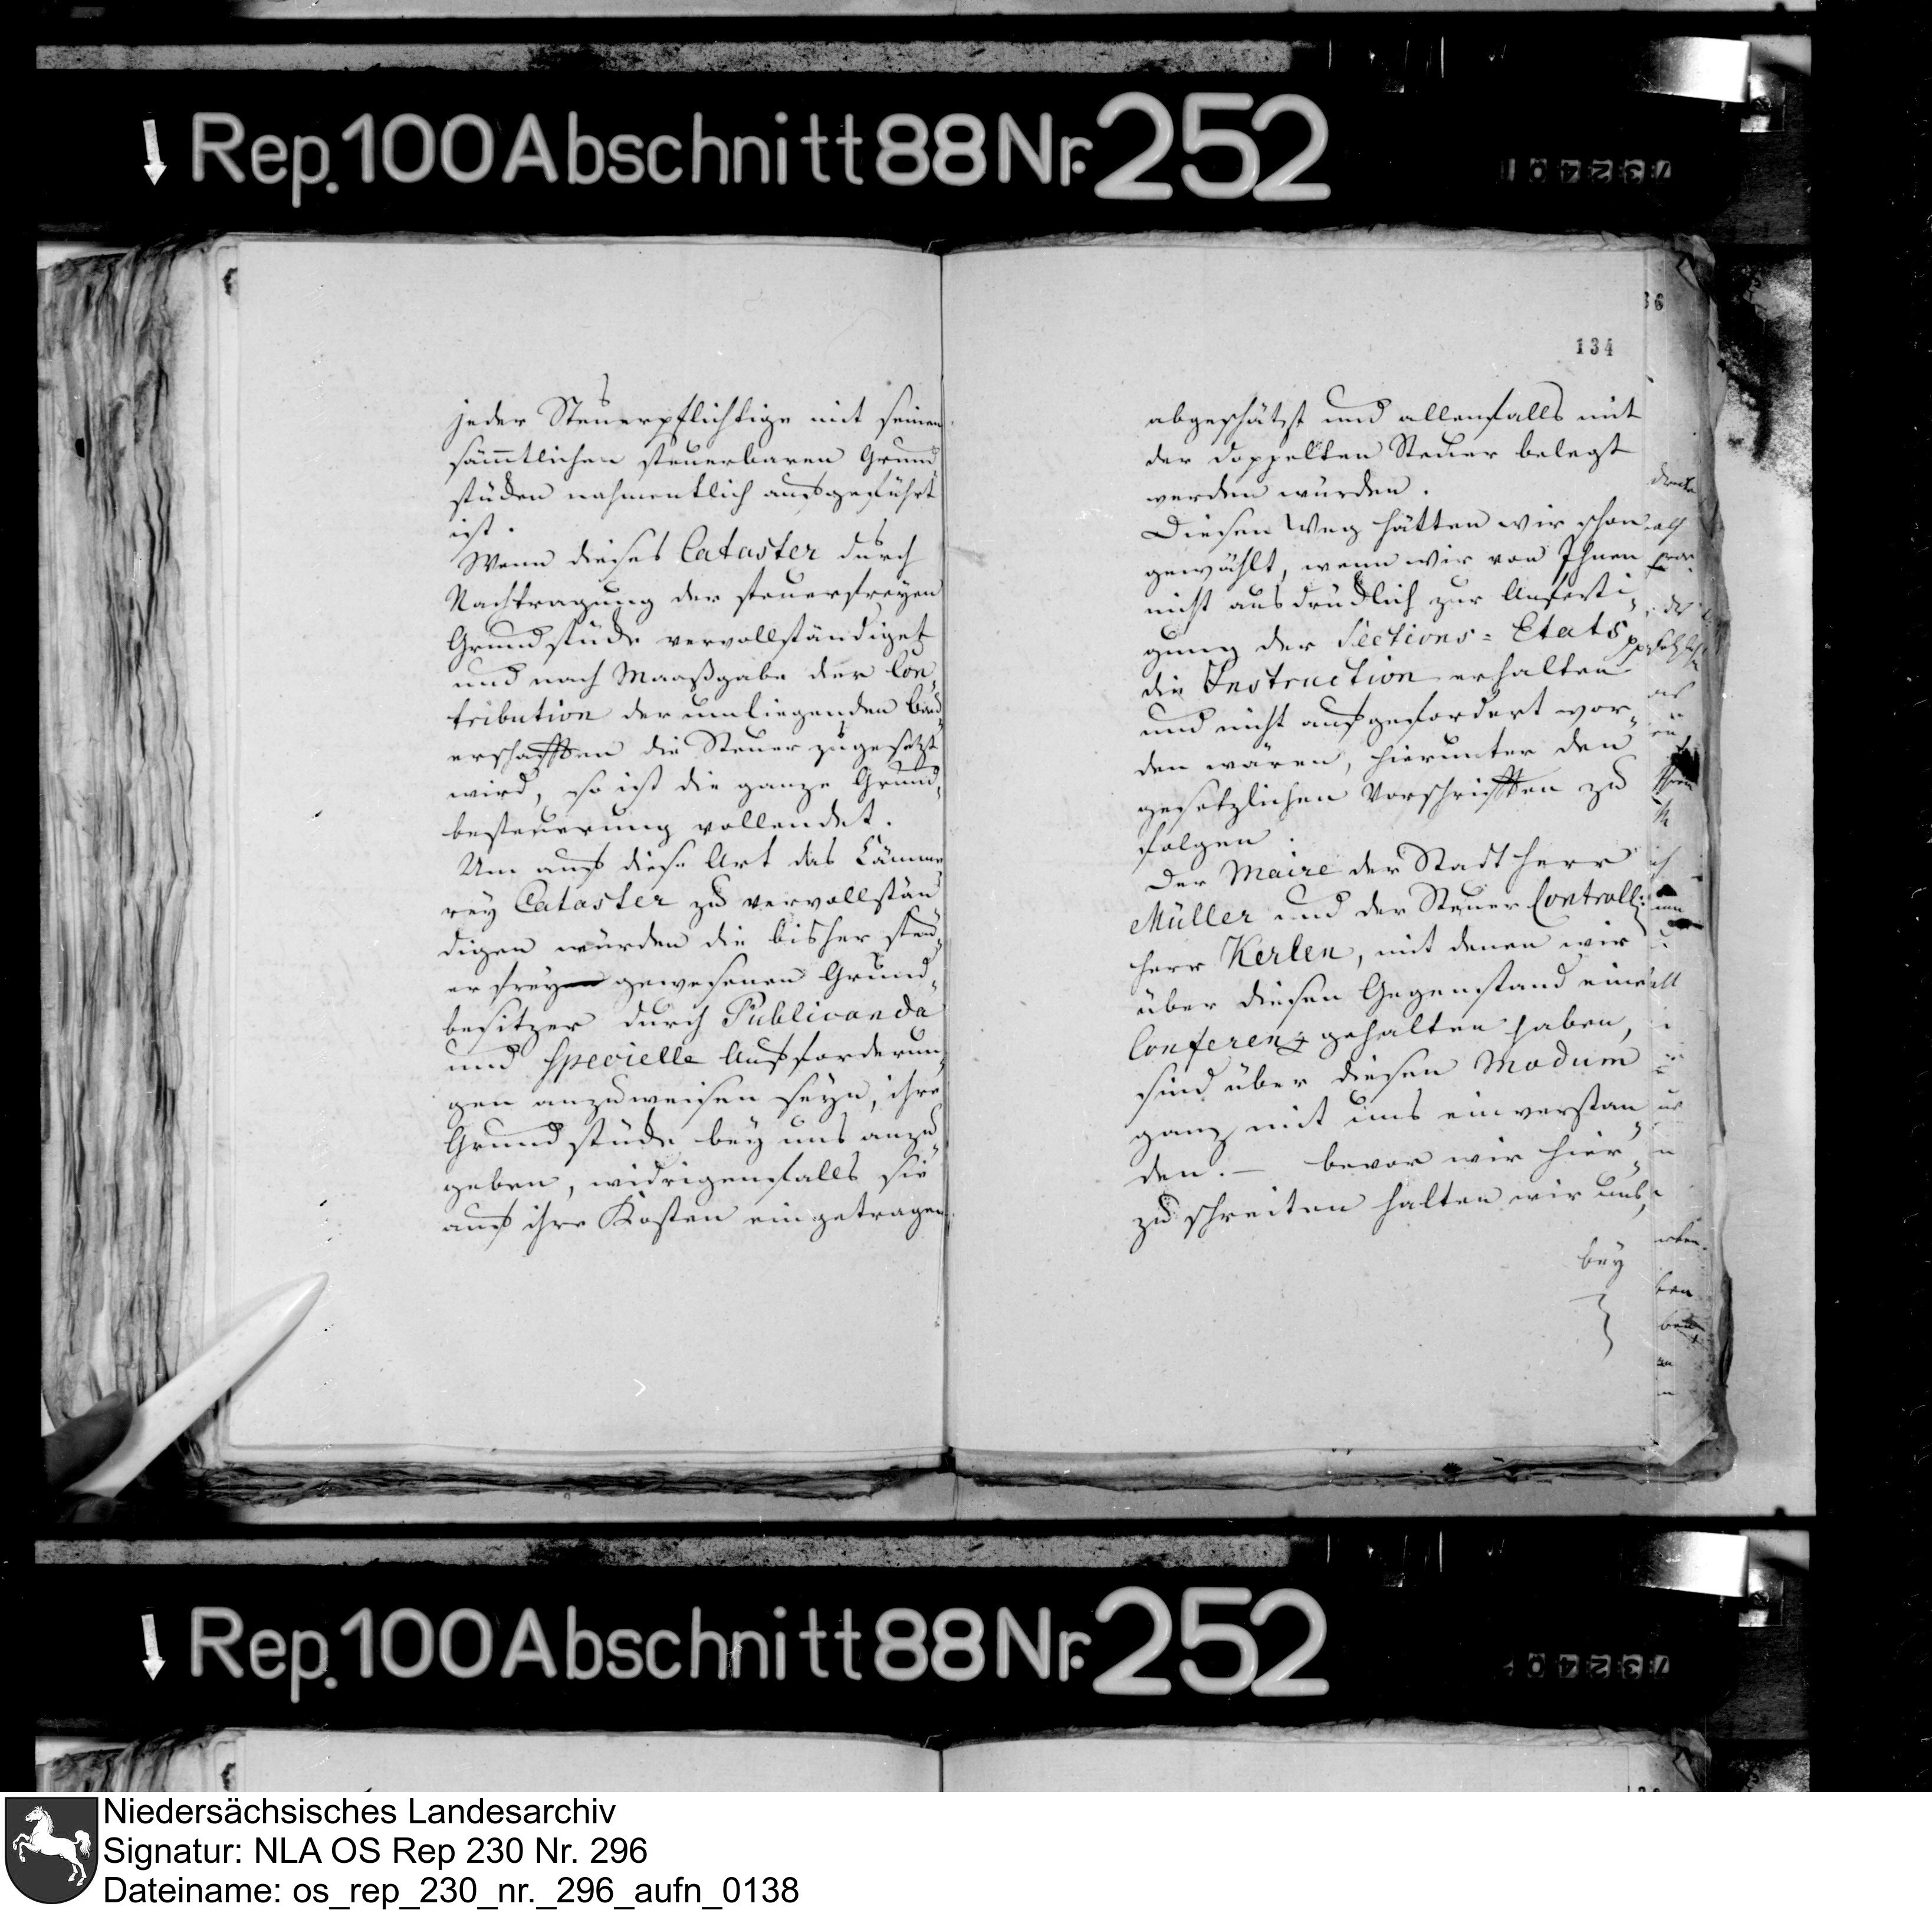 Rep. 100 Abschnitt 88 Nr. 252
134
jeder Steuerpflichtige mit seinen
sämmtlichen steuerbaren Grund
stücken nahmentlich aufgeführt
ist.
Wenn dieses Cataster durch
Nachtragung der steuerfreyen
Grundstücke vervollständiget
und nach Maaßgabe der Con„
tribution der umliegenden Bau
erschafften die Steuer zugesetzt
wird, so ist die ganze Grund„
besteuerung vollendet.
Um auf diese Art das Cämme
rey Cataster zu vervollstän
digen würden die bisher steu„
erfrey gewesenen Grund„
besitzer durch Publicanda
und specielle Aufforderun„
gen anzuweisen seyn, ihre
Grundstücke bey uns anzu
geben, widrigenfalls sie
auf ihre Kosten eingetragen
abgeschätzt und allenfalls mit
der doppelten Steuer belegt
werden würden.
Diesen Weg hätten wir schon
gewählt, wenn wir von Ihnen
nicht ausdrücklich zur Anferti„
gung der Sections-Etats pp
die Instruction erhalten
und nicht aufgefordert wor„
den wären, hierunter den
gesetzlichen Vorschrifften zu
folgen.
Der Maire der Stadt Herr
Müller und der Steuer Controll:
Herr Kerlen, mit denen wir
über diesen Gegenstand eine
Conferenz gehalten haben,
sind über diesen Modum
ganz mit uns einverstan„
den. — bevor wir hier„
zu schreiten halten wir uns,
bey
Rep. 100 Abschnitt 88 Nr. 252
Niedersächsisches Landesarchiv
Signatur: NLA OS Rep 230 Nr. 296
Dateiname: os_rep_230_nr._296_aufn_0138